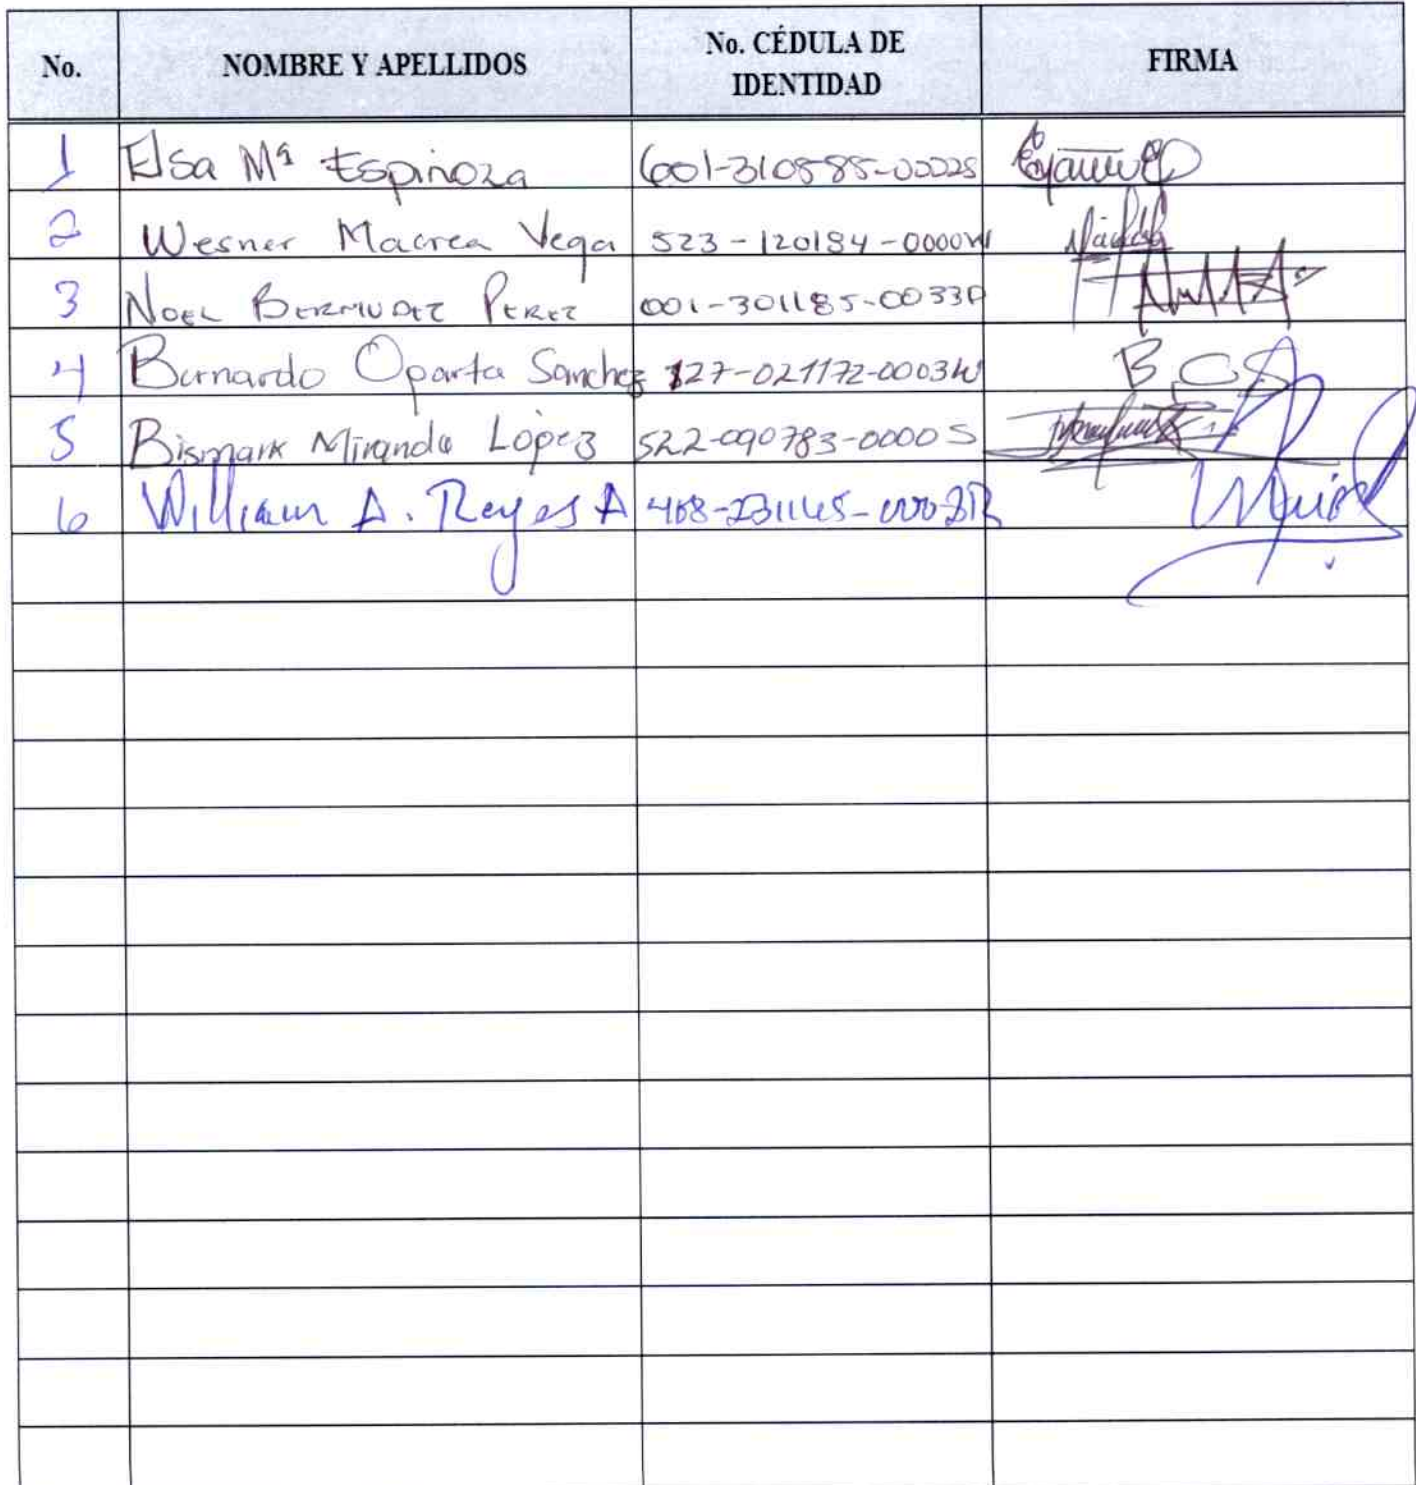 No. NOMBRE Y APELLIDOS No. CÉDULA DE IDENTIDAD FIRMA
1 Elsa Mª Espinoza 601-310585-0002S
2 Wesner Macrea Vega 523-120184-0000W
3 NOEL BERMUDEZ PEREZ 001-301185-0033P
4 Bernardo Oporta Sanchez 127-021172-0003W B.O.S
5 Bismark Miranda López 522-090783-0000S
6 William A. Reyes A